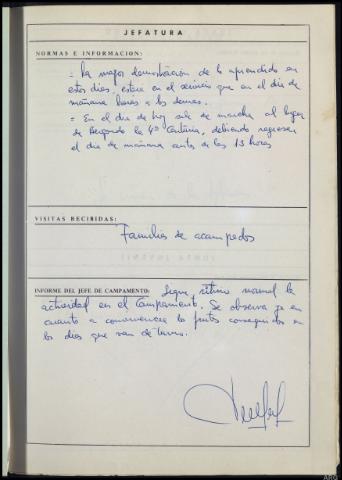 JEFATURA
NORMAS E INFORMACION:
= La mayor demostración de lo aprendido en
estos días, estara en el servicio que en el día de
mañana a los demas.
= En el día de hoy sale de marcha al lugar
de Bergondo la 4ª Centuria, debiendo regresar
el día de mañana antes de las 13 horas
VISITAS RECIBIDAS:
Familias de acampados
INFORME DEL JEFE DE CAMPAMENTO: Sigue ritmo normal la
actividad en el Campamento. Se observa ya en
cuanto a convivencia los frutos conseguidos en
los días que van de turno.
ARG